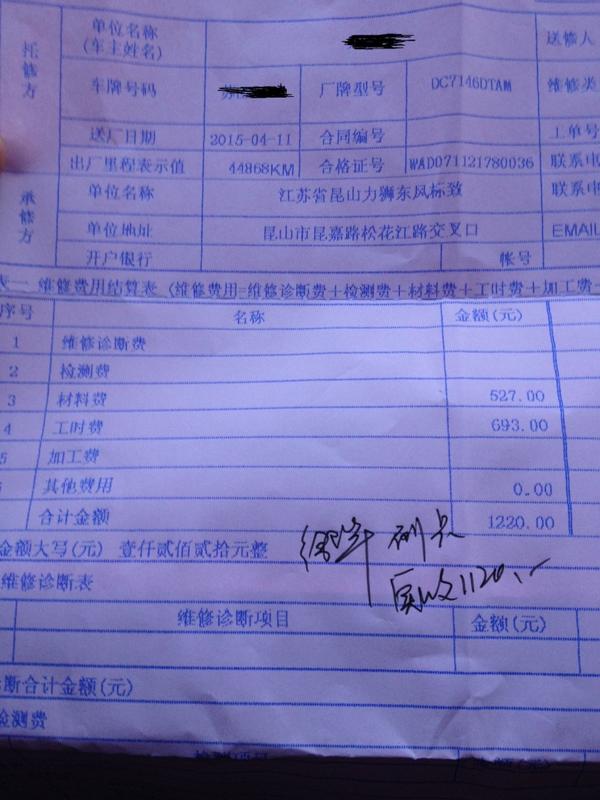 托修方
单位名称 (车主姓名) 送修人
车牌号码 厂牌型号 DC7146DTAM 维修类
送厂日期 2015-04-11 合同编号 工单号
出厂里程表示值 44868KM 合格证号 WAD071121780036 联系电
承修方
单位名称 江苏省昆山力狮东风标致 联系电
单位地址 昆山市昆嘉路松花江路交叉口 EMAIL
开户银行 帐号
表一 维修费用结算表 (维修费用=维修诊断费+检测费+材料费+工时费+加工费
序号 名称 金额(元)
1 维修诊断费
2 检测费
3 材料费 527.00
4 工时费 693.00
5 加工费
其他费用 0.00
合计金额 1220.00
金额大写(元) 壹仟贰佰贰拾元整
实收1120.-
维修诊断表
维修诊断项目 金额(元)
诊断合计金额(元)
检测费